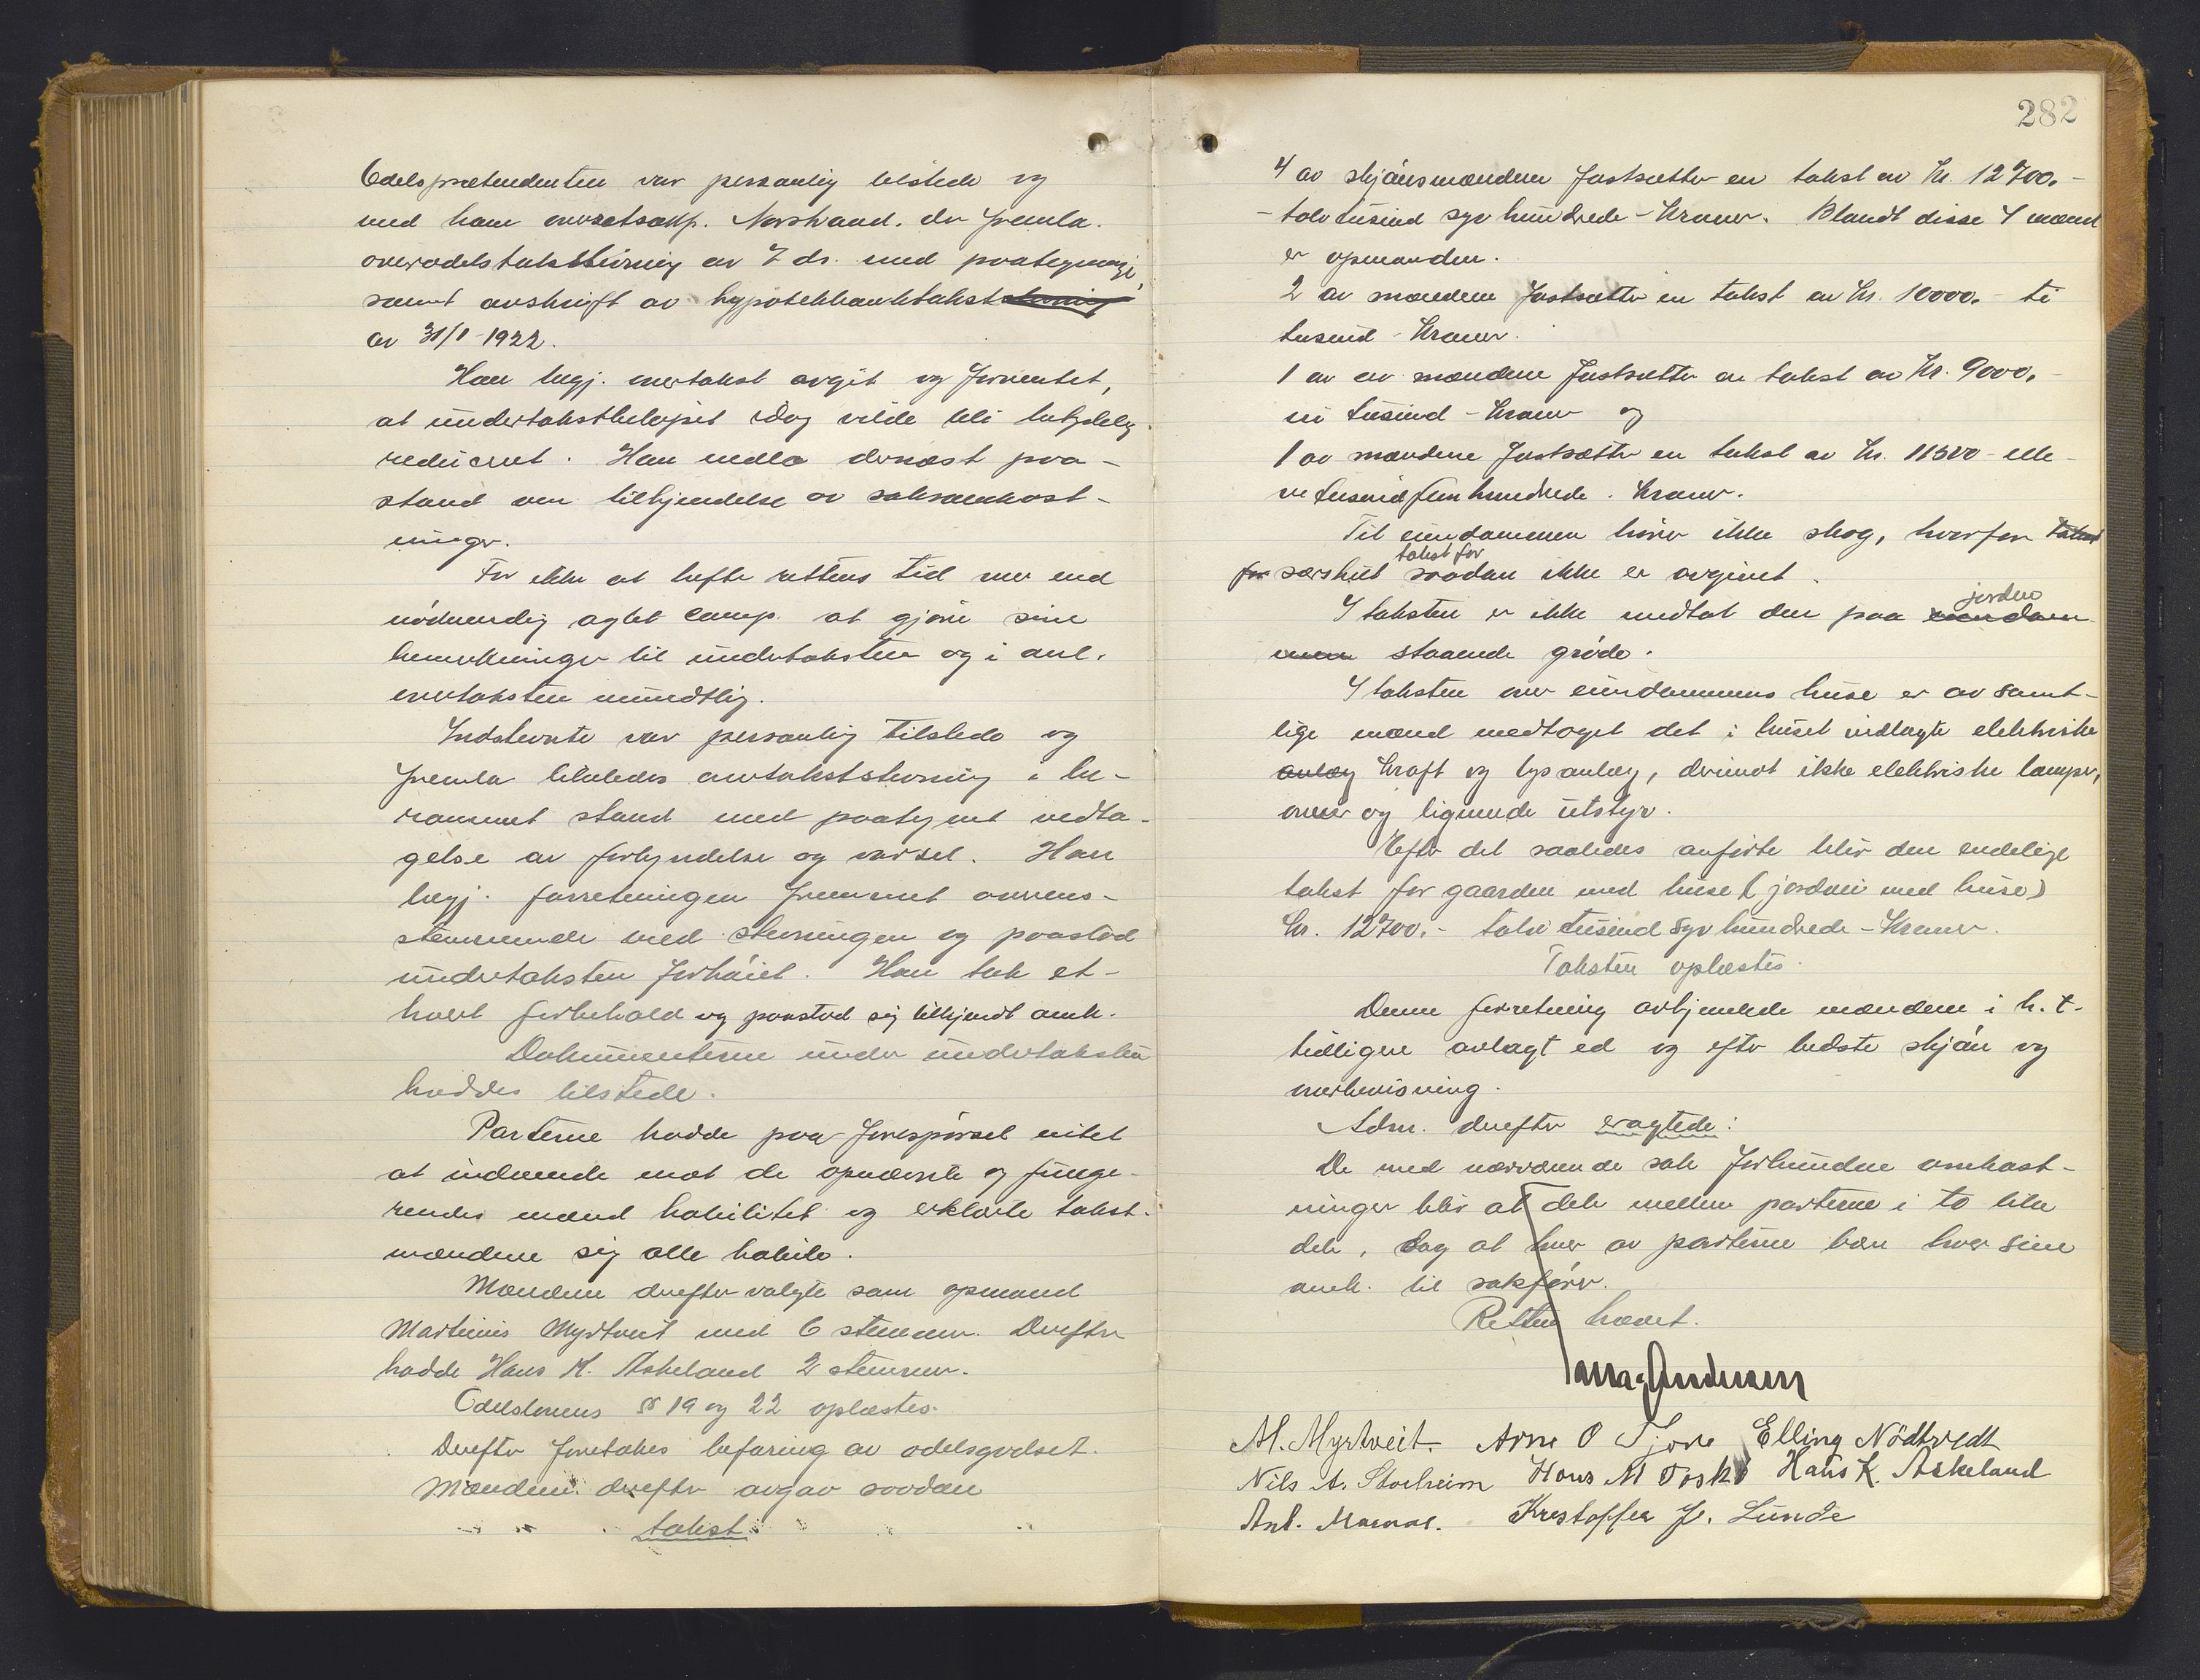 Odelsprætendenten var personlig tilstede og
med ham overretssakf. Norstrand. der fremla.
overodelstakststevning av 7 ds. med paategning,
samt avskrift av hypotekbanktakst
av 31/1-1922.
Han begj. overtakst avgit og forventet,
at undertakstbeløpet dog vilde bli betydelig
reduceret. Han nedla dernæst paa-
stand om tilkjendelse av saksomkost-
ninger.
For ikke at hefte rettens tid mer end
nødvendig agtet comp. at gjøre sine
bemerkninger til undertaksten og i anl.
overtaksten mundtlig.
Indstevnte var personlig tilstede og
fremla likeledes overtakststevning i be-
rammet stand med paategnet vedta-
gelse av forkyndelse og varsel. Han
begj. forretningen fremmet overens-
stemmende med stevningen og paastod
undertaksten forhøiet. Han tok et-
hvert forbehold og paastod sig tilkjendt omk.
Dokumenterne under undertaksten
haddes tilstede.
Parterne hadde paa forespørsel intet
at indvende mot de opnævnte og funge-
rendes mænd habilitet og erklærte takst-
mændene sig alle habile.
Mændene derefter valgte som opmand
Martinus Myrtveit med 6 stemmer. Derefter
hadde Hans K. Askeland 2 stemmer.
Odelslovens §§ 19 og 22 oplæstes.
Derefter foretokes befaring av odelsgodset.
Mændene derefter avgav saadan
takst:
282
4 av skjønsmændene fastsætter en takst av Kr. 12700.-
-tolv tusind syv hundrede - Kroner. Blandt disse 4 mænd
er opmanden.
2 av mændene fastsætter en takst av Kr. 10000.- ti
tusind - Kroner.
1 av av mændene fastsætter en takst av Kr. 9000.-
ni tusind - Kroner og
1 av mændene fastsætter en takst av Kr. 11500 - elle-
ve tusind fem hundrede. Kroner.
Til eiendommen hører ikke skog, hvorfor takst
for særskilt takst for saadan ikke er avgivet.
I taksten er ikke medtat den paa jorden
staaende grøde.
I taksten over eiendommens huse er av samt-
lige mænd medtaget det i huset indlagte elektriske
anlæg kraft og lysanlæg, derimot ikke elektriske lamper,
ovner og lignende utstyr.
Efter det saaledes anførte blir den endelige
takst for gaarden med huse (jorden med huse)
Kr. 12700.- tolv tusind syv hundrede - Kroner.
Taksten oplæstes.
Denne forretning avhjemlede mændene i h. t.
tidligere avlagt ed og efter bedste skjøn og
overbevisning.
Adm. derefter eragtede:
De med nærværende sak forbundne omkost-
ninger blir at dele mellem parterne i to like
dele, dog at hver av parterne bær hver sine
omk. til sakfører.
Retten hævet.
Andersen
M. Myrtveit. Arne O Tjore Elling Nödtvedt
Nils A. Storheim Hans M Toska Hans K. Askeland
Ant. Kristoffer J. Lunde